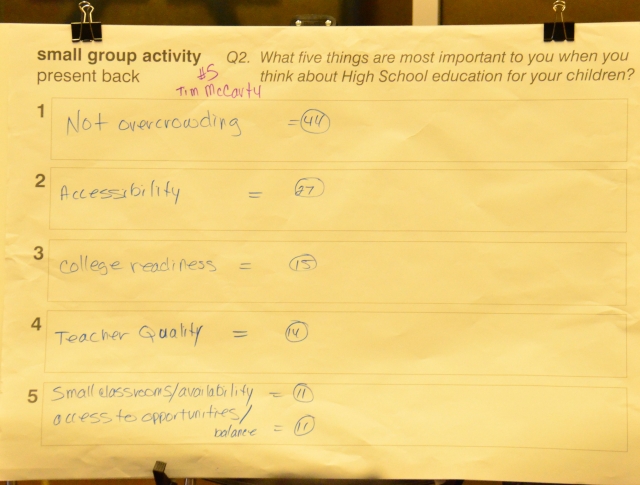 small group activity Q2. What five things are most important to you when you
present back think about High School education for your children?
#5
Tim McCarty
1 Not overcrowding = 44
2 Accessibility = 27
3 college readiness = 15
4 Teacher Quality = 14
5 Small classrooms/availability = 11
access to opportunities/
balance = 11